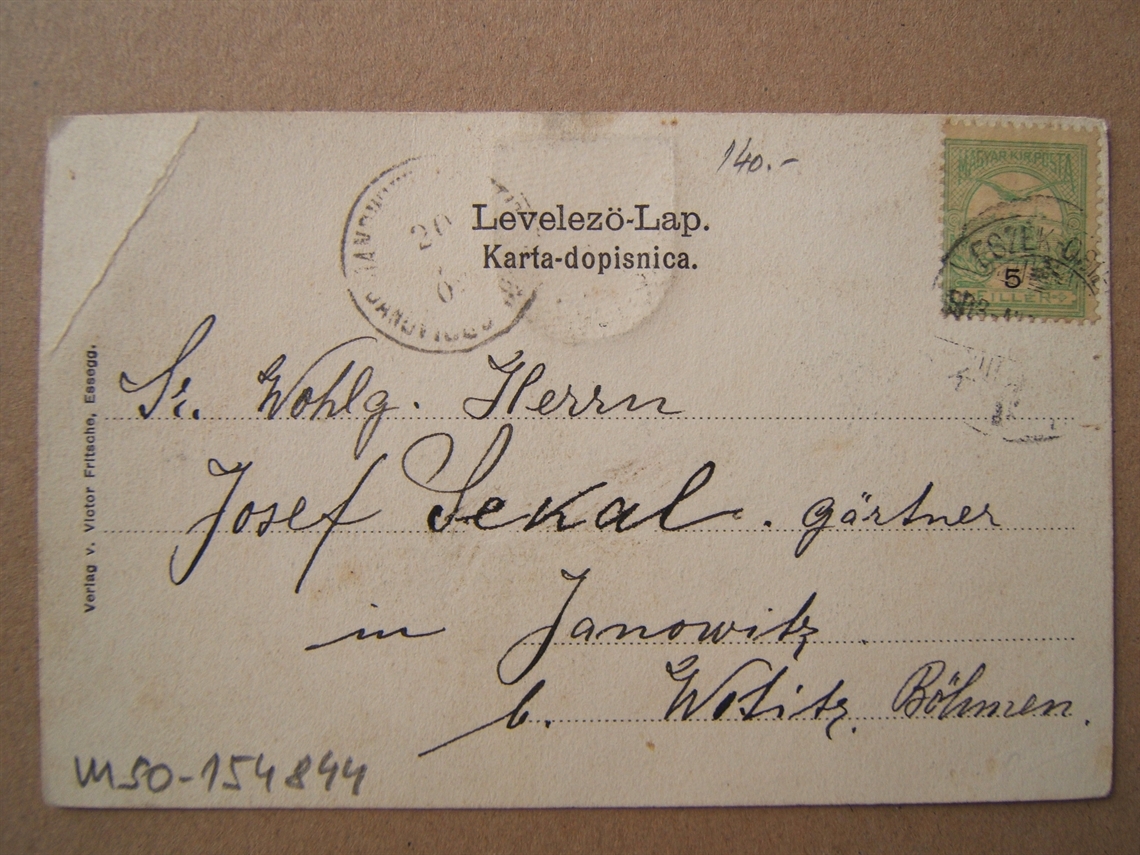 140.-
Levelező-Lap.
Karta-dopisnica.
MAGYAR KIR. POSTA
5
FILLÉR
20
Sr. Wohlg. Herrn
Josef Sekal. gärtner
in Janowitz
b. Wotitz. Böhmen.
Verlag v. Victor Fritsche, Essegg.
MSO-154844